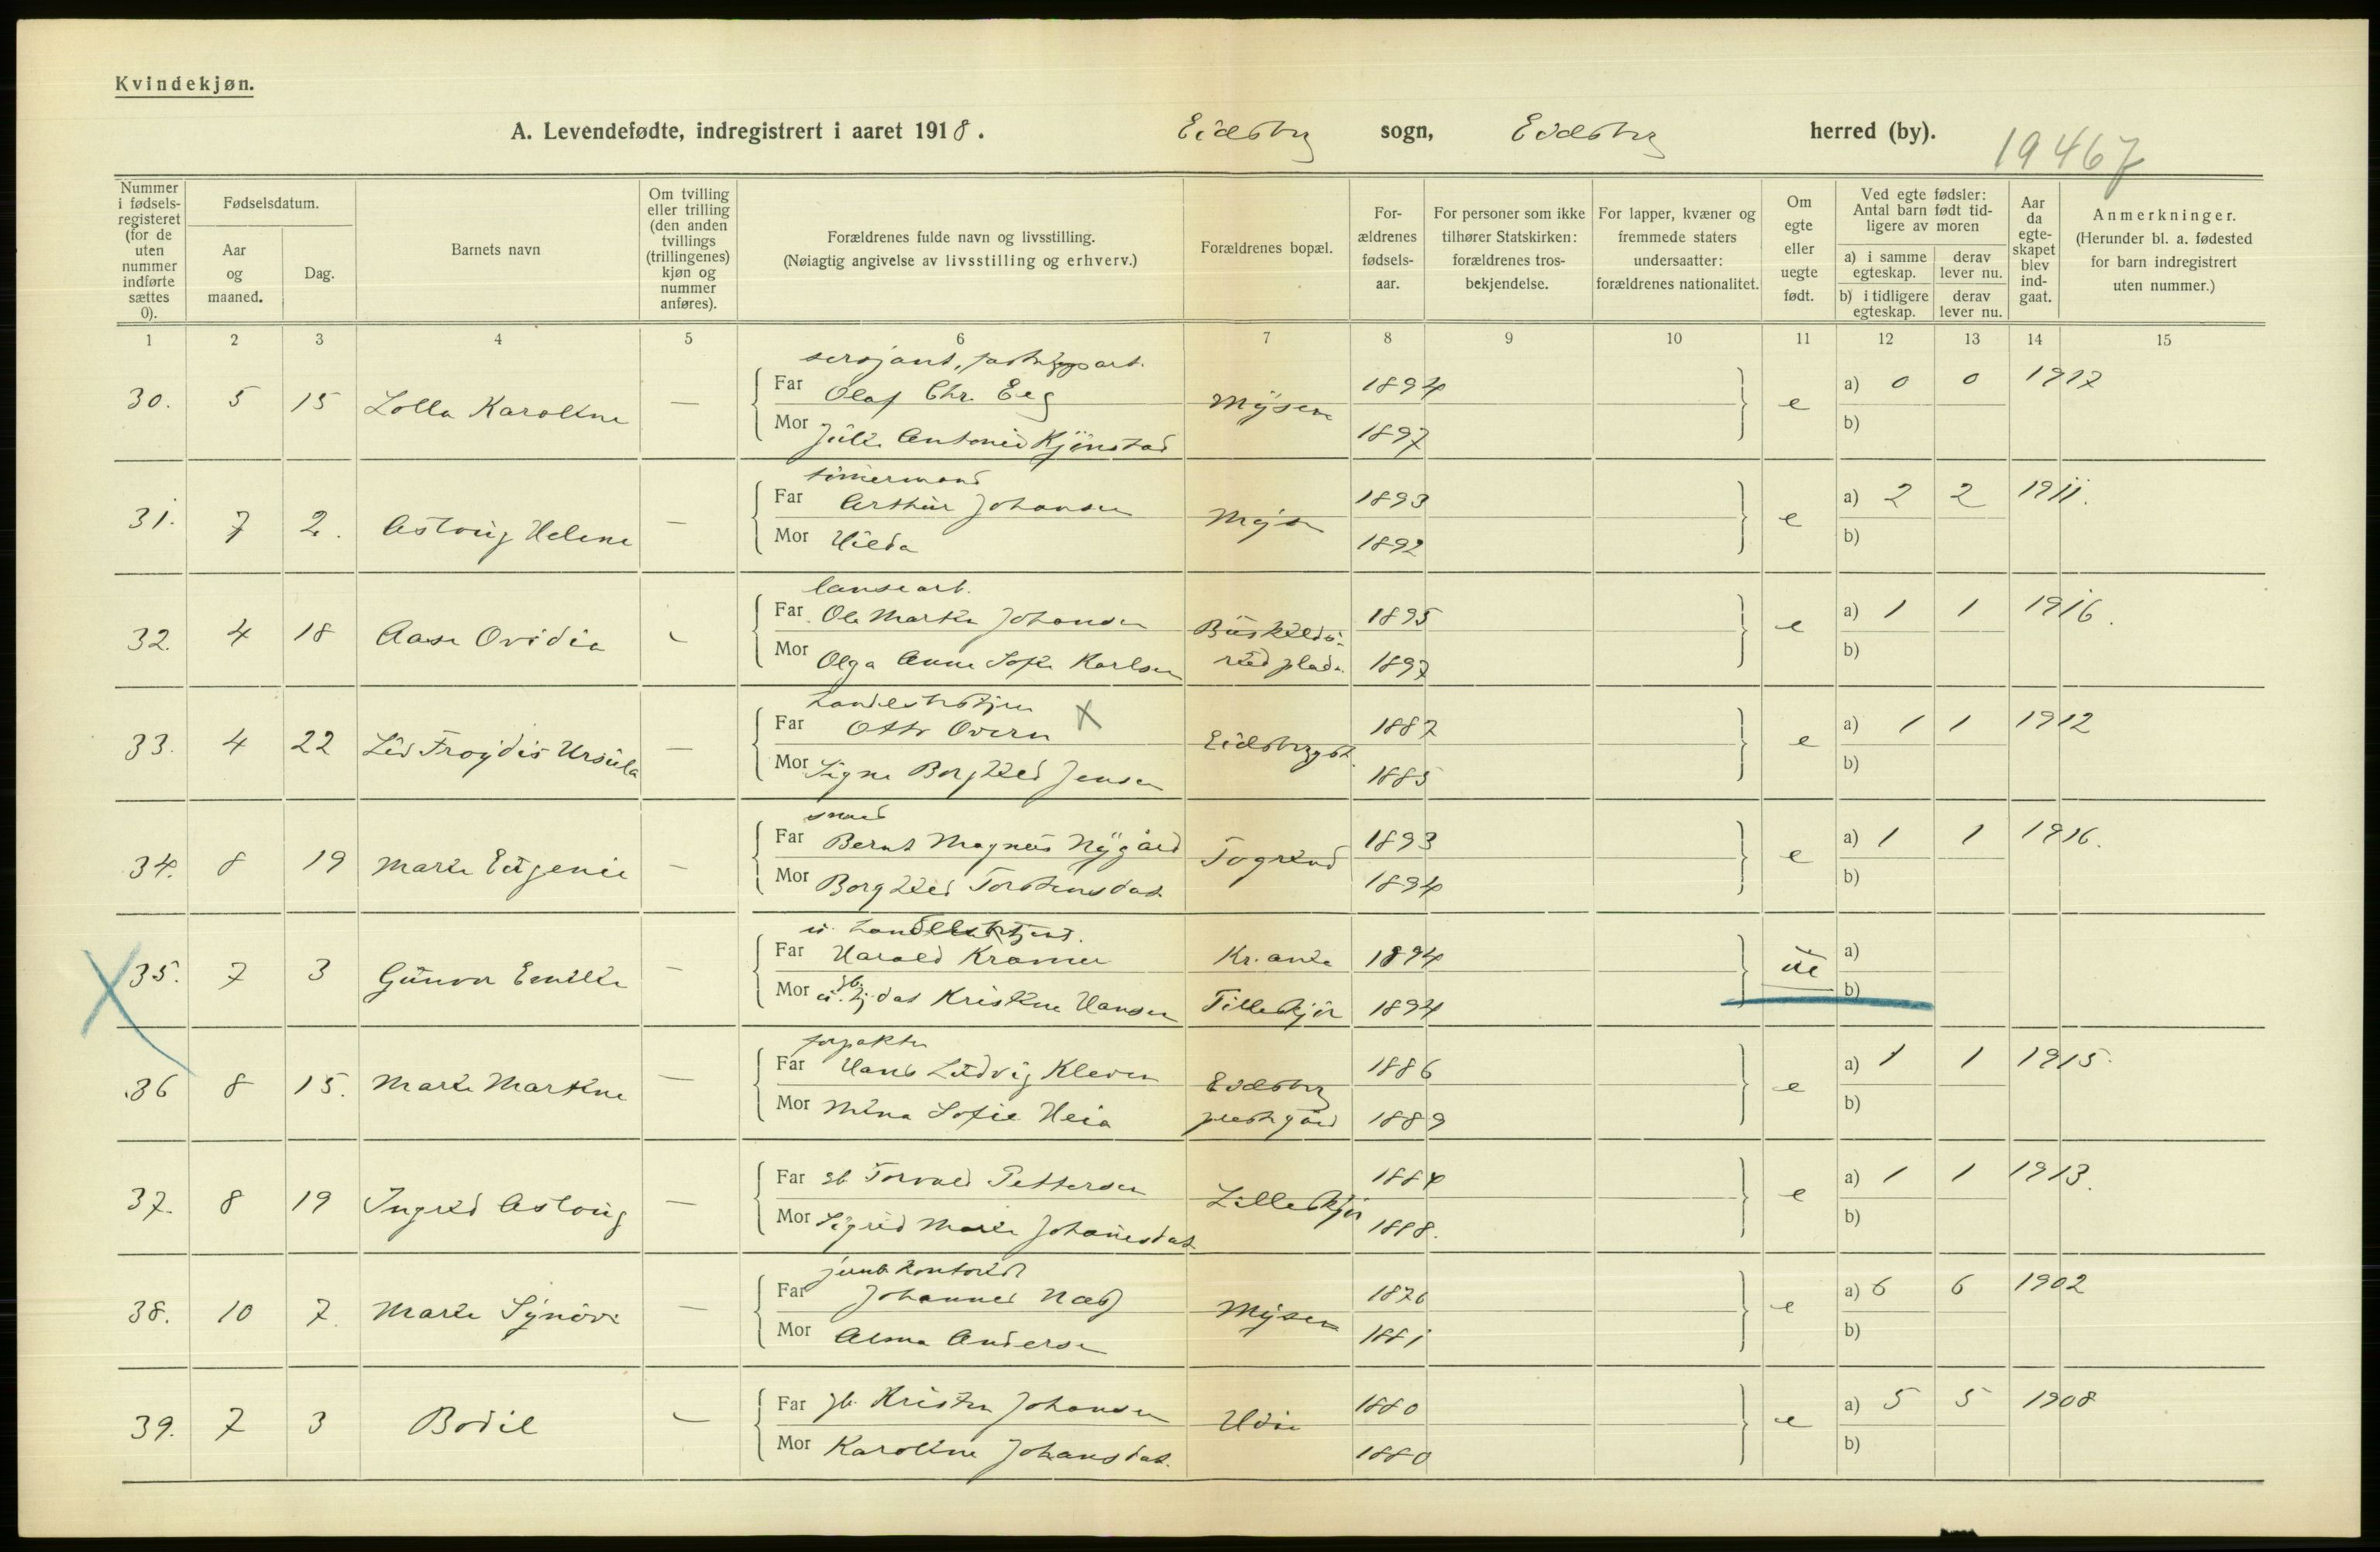 Kvindekjøn.
A. Levendefødte, indregistrert i aaret 1918. Eidsberg sogn, Eidsberg herred (by).
19467
Nummer i fødselsregisteret (for de uten nummer indførte sættes 0).
Fødselsdatum.
Aar og maaned.
Dag.
Barnets navn
Om tvilling eller trilling (den anden tvillings (trillingenes) kjøn og nummer anføres).
Forældrenes fulde navn og livsstilling.
(Nøiagtig angivelse av livsstilling og erhverv.)
Forældrenes bopæl.
Forældrenes fødselsaar.
For personer som ikke tilhører Statskirken: forældrenes trosbekjendelse.
For lapper, kvæner og fremmede staters undersaatter: forældrenes nationalitet.
Om egte eller uegte født.
Ved egte fødsler: Antal barn født tidligere av moren
a) i samme egteskap.
derav lever nu.
b) i tidligere egteskap.
derav lever nu.
Aar da egteskapet blev indgaat.
Anmerkninger.
(Herunder bl. a. fødested for barn indregistrert uten nummer.)
1 2 3 4 5 6 7 8 9 10 11 12 13 14 15
sersjant,
30. 5 15 Lolla Karoline — Far Olaf Chr. Eeg Mysen 1894 e a) 0 0 1917
Mor Julie Antonie Kjönstad 1897 b)
tömermand
31. 7 2. Aslaug Helene — Far Arthur Johansen Mysen 1893 e a) 2 2 1911.
Mor Hilda 1892 b)
lansearb.
32. 4 18 Aase Ovidia — Far Ole Martin Johansen 1895 e a) 1 1 1916.
Mor Olga Anne Sofie Karlsen rud plads. 1897 b)
handelsbetjen
33. 4 22 Liv Frøydis Ursula — Far Otto Overn X Eidsberg st. 1887 e a) 1 1 1912
Mor Signe Borghild Jensen 1885 b)
smed
34. 8 19 Marie Eugenie — Far Bernt Magnus Nygård Togrind 1893 e a) 1 1 1916.
Mor Borghild Torstensdat 1894 b)
u. handelsbetjent.
35. 7 3 Gunvor Emilie — Far Harald Kramer Kr.ania 1894 ue a)
Mor u. gbr. dat Kristine Hansen Lilleskjör 1894 b)
forpakter
36 8 15. Marie Martine — Far Hans Ludvig Kleven Eidsberg 1886 e a) 1 1 1915.
Mor Mina Sofie Heia prestegård 1889 b)
37. 8 19 Ingrid Aslaug — Far gb Torvald Pettersen Lilleskjör 1884 e a) 1 1 1913.
Mor Sigrid Marie Johannesdat 1888. b)
jernb. kontorist
38. 10 7. Marie Synöve — Far Johannes Næss Mysen 1876 e a) 6 6 1902
Mor Alma Andersen 1881 b)
39. 7 3 Bodil — Far gb. Kristen Johansen 1880 e a) 5 5 1908
Mor Karoline Johansdat. 1880 b)